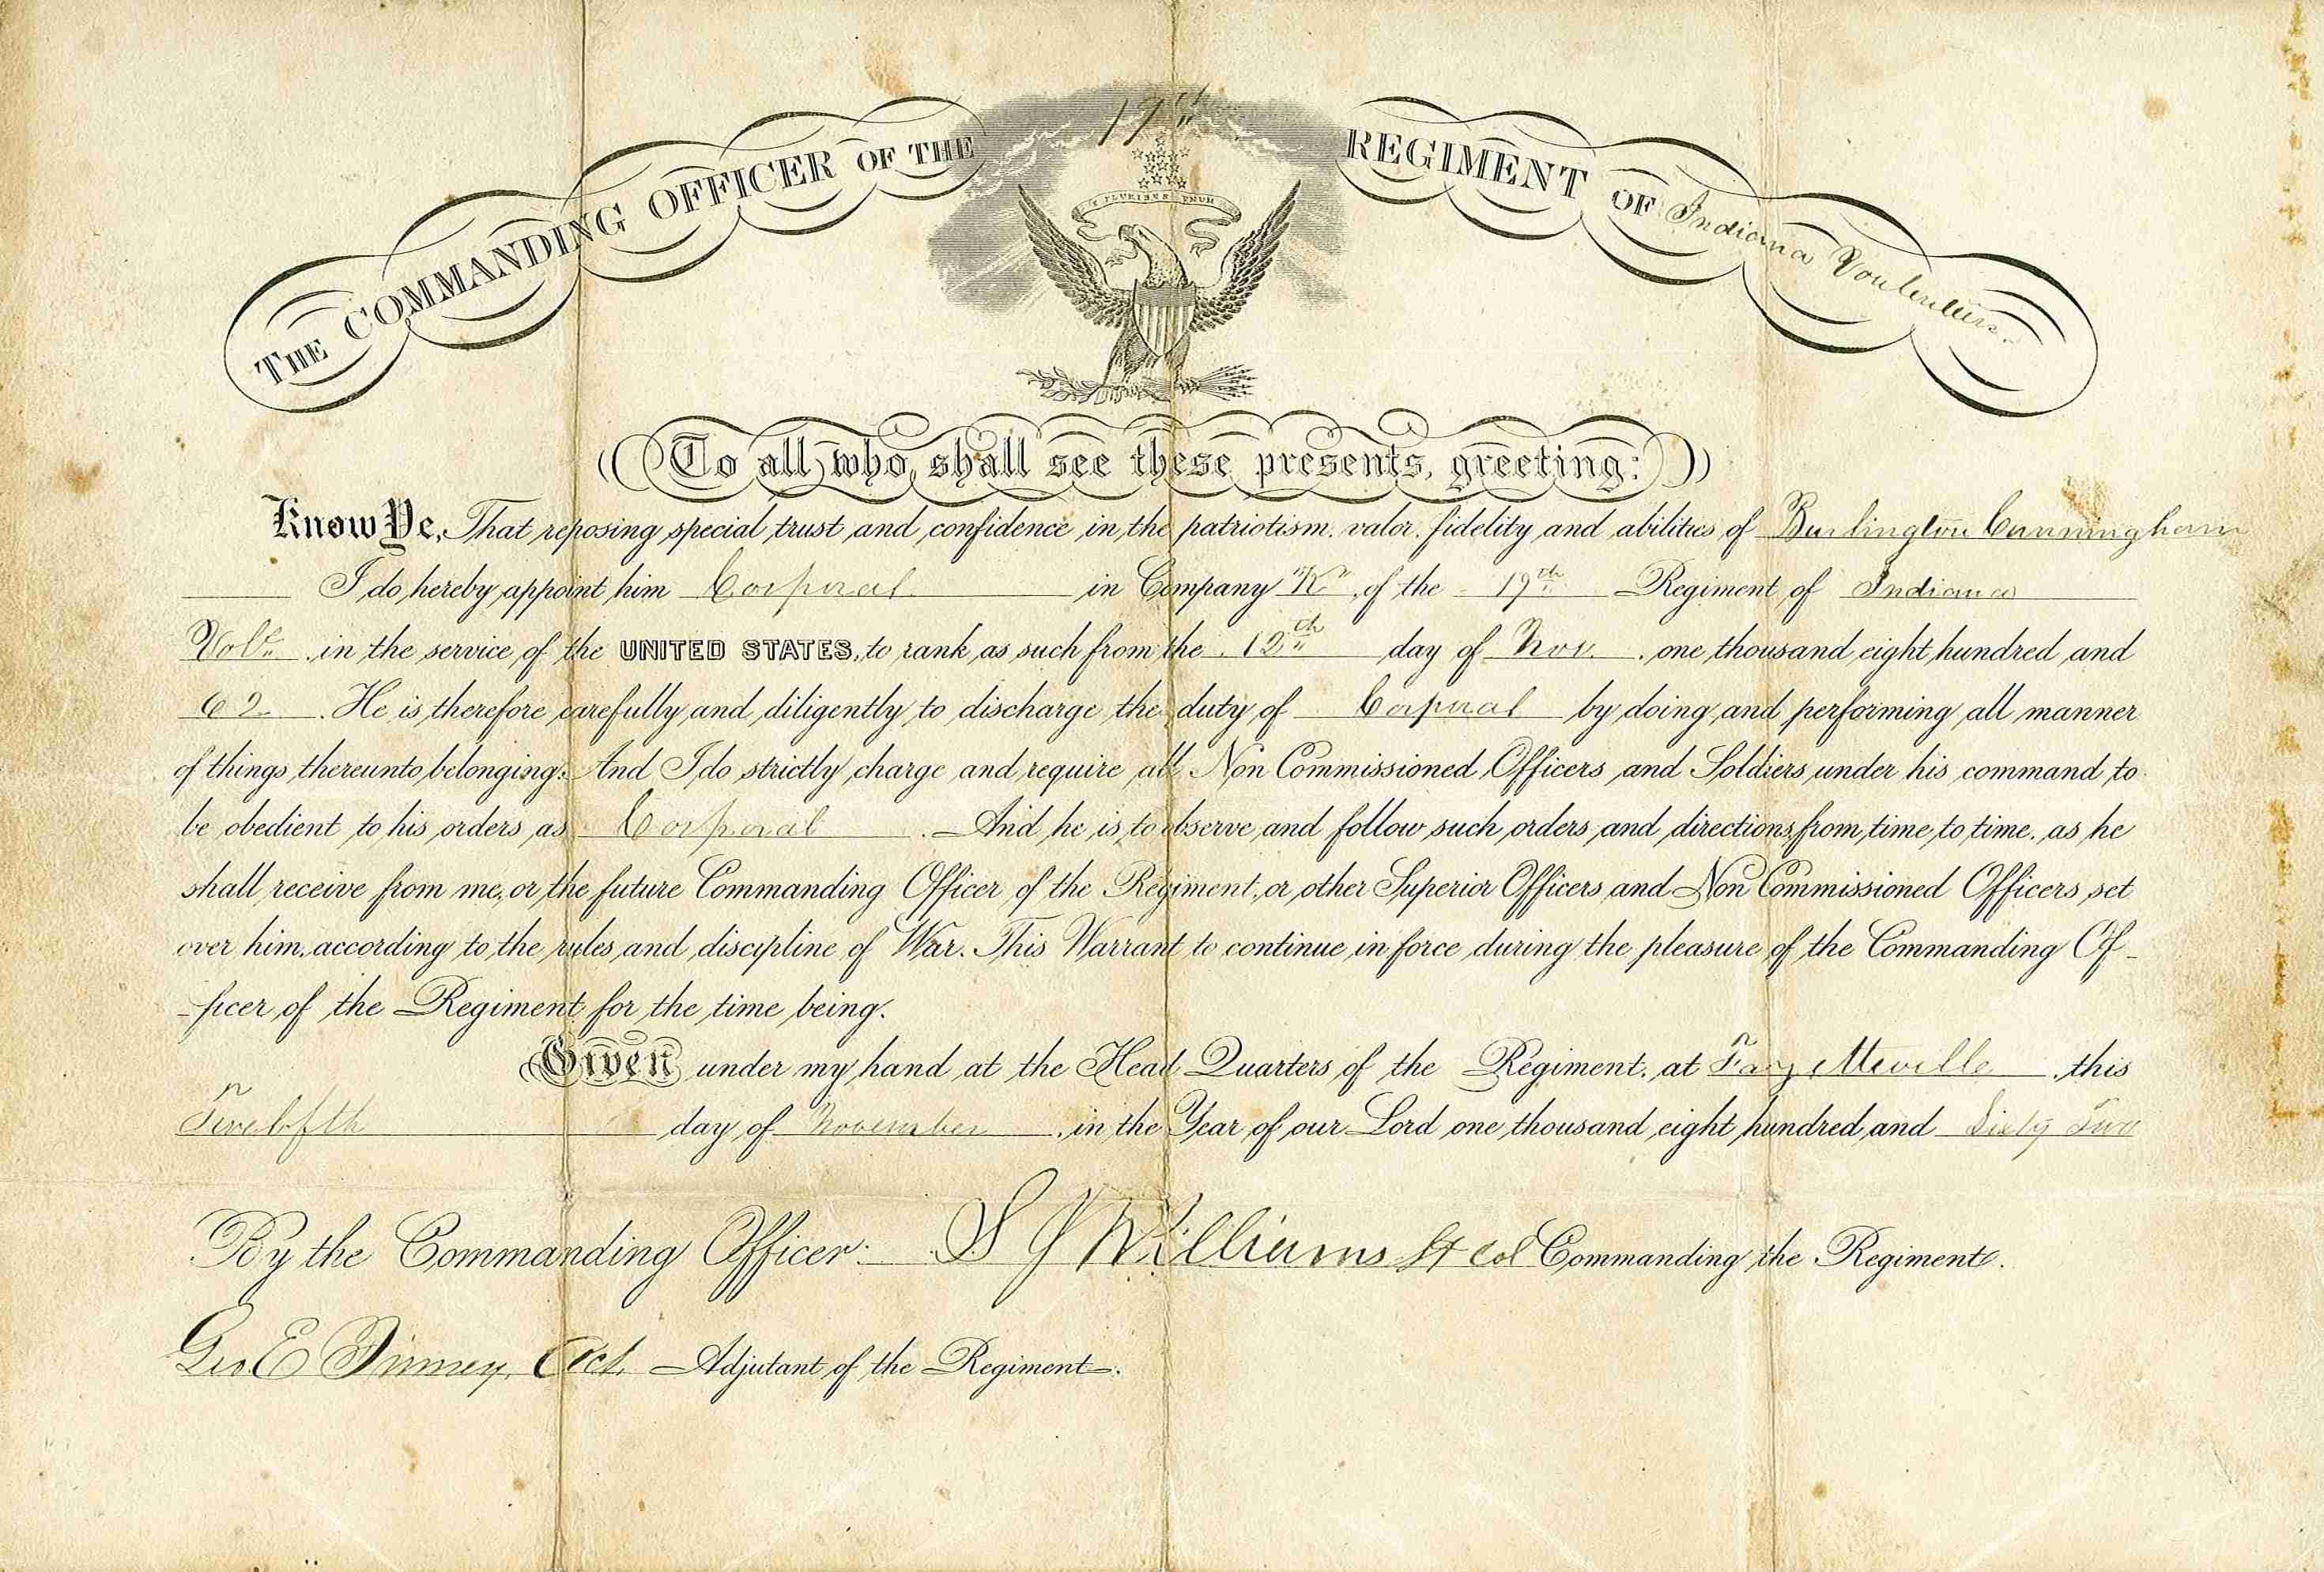 THE COMMANDING OFFICER OF THE 19th REGIMENT OF Indiana Voulenteers.
E PLURIBUS UNUM
To all who shall see these presents, greeting:
Know Ye, That reposing special trust and confidence in the patriotism, valor, fidelity and abilities of Burlington Cunningham
I do hereby appoint him Corporal in Company "K" of the 19th Regiment of Indiana
Vols. in the service of the UNITED STATES, to rank as such from the 12th day of Nov. one thousand eight hundred and
62. He is therefore carefully and diligently to discharge the duty of Corporal by doing and performing all manner
of things thereunto belonging. And I do strictly charge and require all Non Commissioned Officers and Soldiers under his command to
be obedient to his orders as Corporal. And he is to observe and follow such orders and directions from time to time, as he
shall receive from me, or the future Commanding Officer of the Regiment, or other Superior Officers and Non Commissioned Officers set
over him, according to the rules and discipline of War. This Warrant to continue in force during the pleasure of the Commanding Of-
-ficer of the Regiment for the time being.
Given under my hand at the Head Quarters of the Regiment, at this
Twelfth day of November in the Year of our Lord one thousand eight hundred and Sixty Two
By the Commanding Officer: S J Williams Lt Col Commanding the Regiment.
Geo. E Finney, Act. Adjutant of the Regiment.